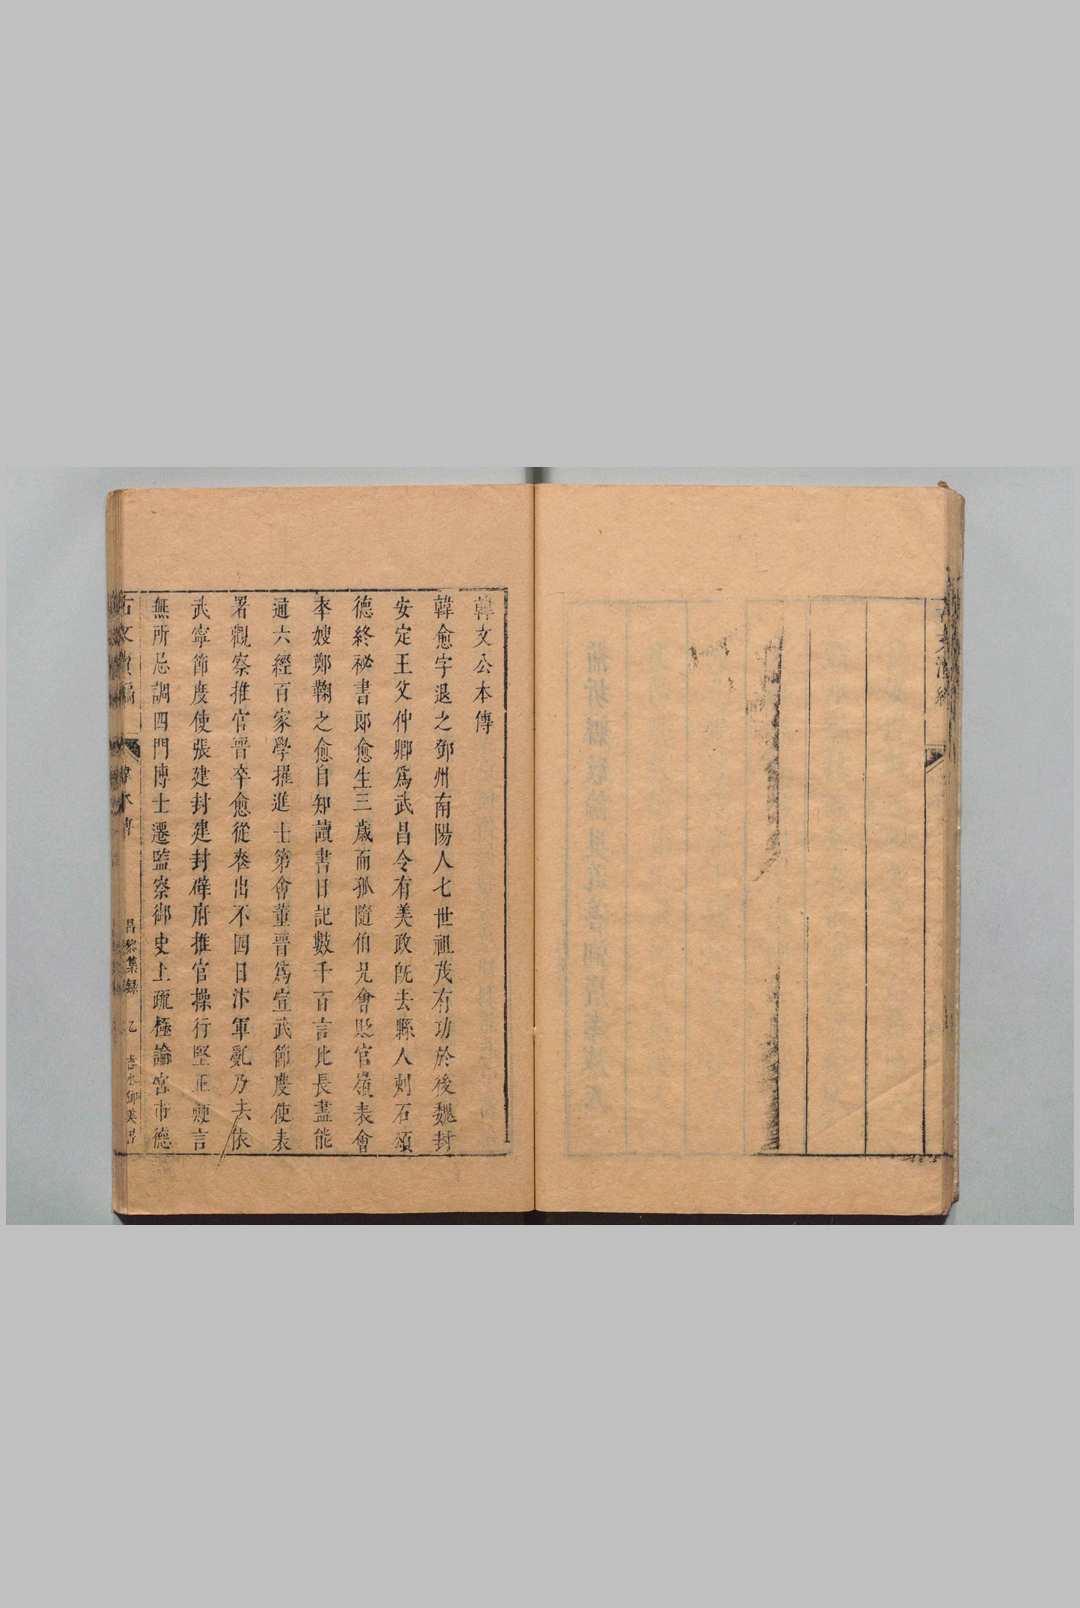 韓文公本傳
韓愈字退之鄧州南陽人七世祖茂有功於後魏封
安定王父仲卿爲武昌令有美政旣去縣人刻石頌
德終祕書郎愈生三歲而孤隨伯兄會貶官嶺表會
卒嫂鄭鞠之愈自知讀書日記數千百言比長盡能
通六經百家學擢進士第會董晉爲宣武節度使表
署觀察推官晉卒愈從喪出不四日汴軍亂乃去依
武寧節度使張建封建封辟府推官操行堅正鯁言
無所忌調四門博士遷監察御史上疏極論宮市德
古文
韓本傳
昌黎集錄
乙